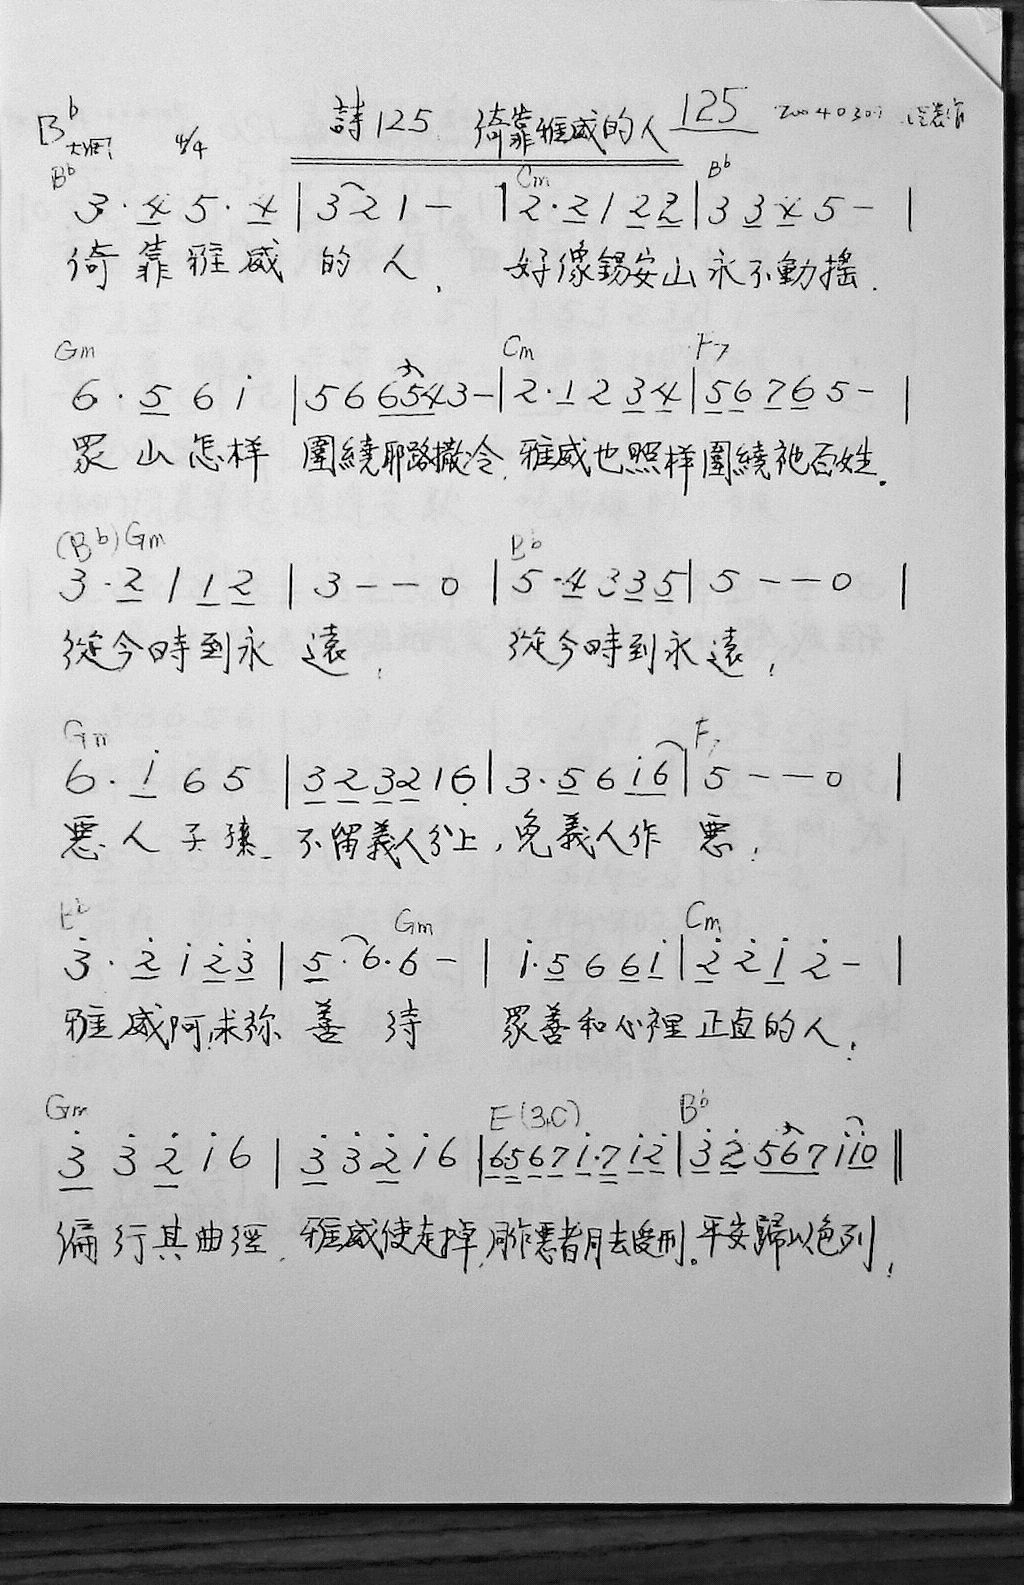 詩125 倚靠雅威的人 125
B♭大調 4/4
B♭ Cm B♭
3·4 5·4 | 3 2 1 - | 2·2 1 2 2 | 3 3 4 5 - |
倚靠雅威的人, 好像錫安山永不動搖.
Gm Cm F7
6·5 6 i | 5 6 6 5 4 3 - | 2·1 2 3 4 | 5 6 7 6 5 - |
眾山怎樣圍繞耶路撒冷, 雅威也照樣圍繞祂百姓.
(B♭) Gm B♭
3·2 1 1 2 | 3 - - 0 | 5·4 3 3 5 | 5 - - 0 |
從今時到永遠, 從今時到永遠,
Gm F7
6·i 6 5 | 3 2 3 2 1 6 | 3·5 6 i 6 | 5 - - 0 |
惡人子孫 不留義人分上, 免義人作惡,
E♭ Gm Cm
3·2 i 2 3 | 5·6·6 - | i·5 6 6 i | 2 2 i 2 - |
雅威阿,求祢善待 眾善和心裡正直的人,
Gm E(3,C) B♭
3 3 2 i 6 | 3 3 2 i 6 | 6 5 6 7 i·7 i 2 | 3 2 5 6 7 i i 0 ‖
偏行其曲徑, 雅威使走掉, 同作惡者同去受刑。平安歸以色列,